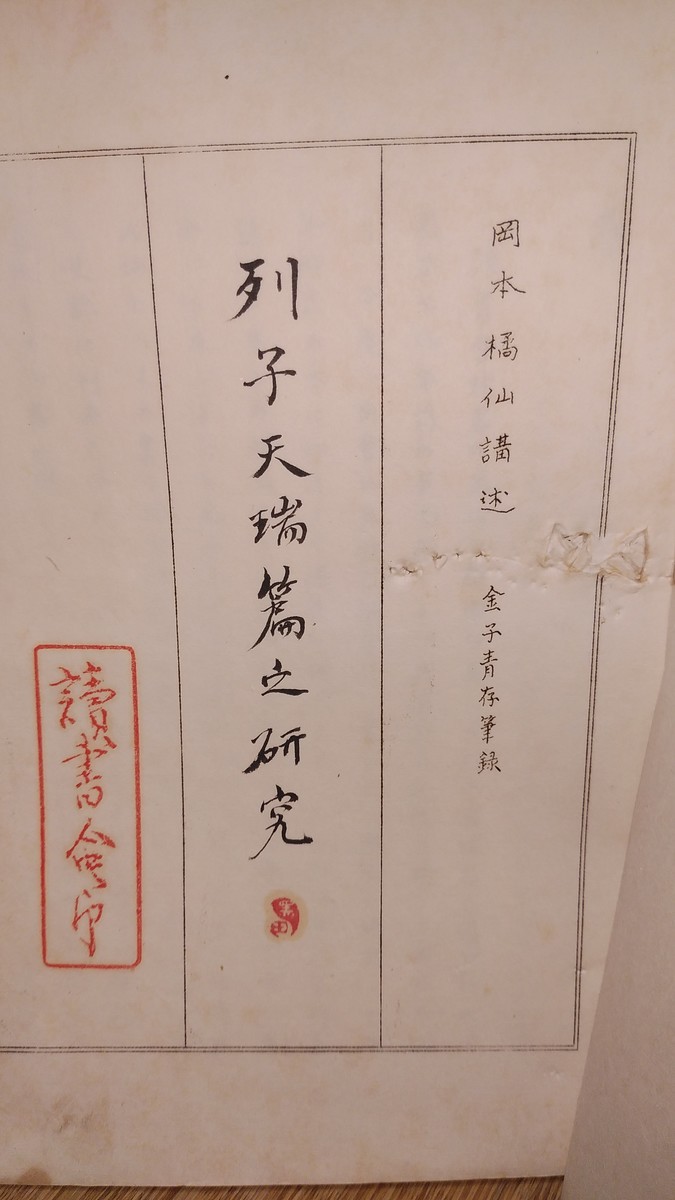 岡本橘仙講述　金子青存筆録
列子天瑞篇之研究
黒田
讀書會印